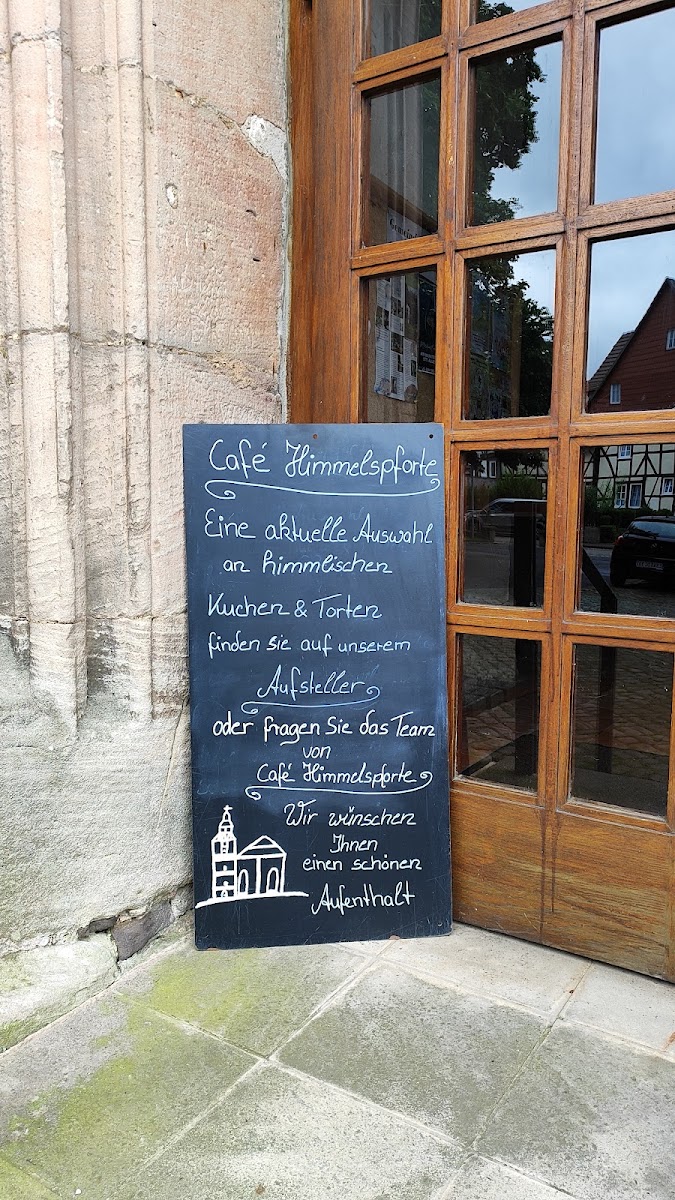 Café Himmelspforte
Eine aktuelle Auswahl
an himmlischen
Kuchen & Torten
finden sie auf unserem
Aufsteller
oder fragen Sie das Team
von
Café Himmelspforte
Wir wünschen
Ihnen
einen schönen
Aufenthalt